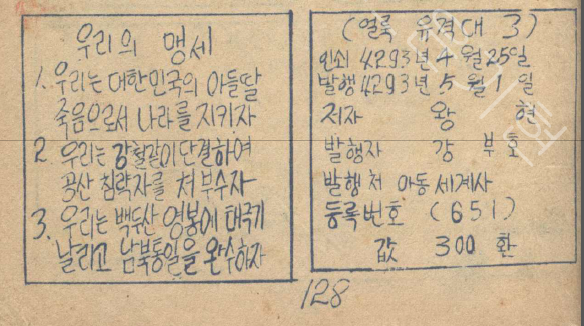 우리의 맹세
1. 우리는 대한민국의 아들딸
죽음으로서 나라를 지키자
2. 우리는 강철같이 단결하여
공산 침략자를 쳐부수자
3. 우리는 백두산 영봉에 태극기
날리고 남북통일을 완수하자
(얼룩 유격대 3)
인쇄 4293년 4월 25일
발행 4293년 5월 1일
저자 왕현
발행자 강부호
발행처 아동세계사
등록번호 (651)
값 300 환
128